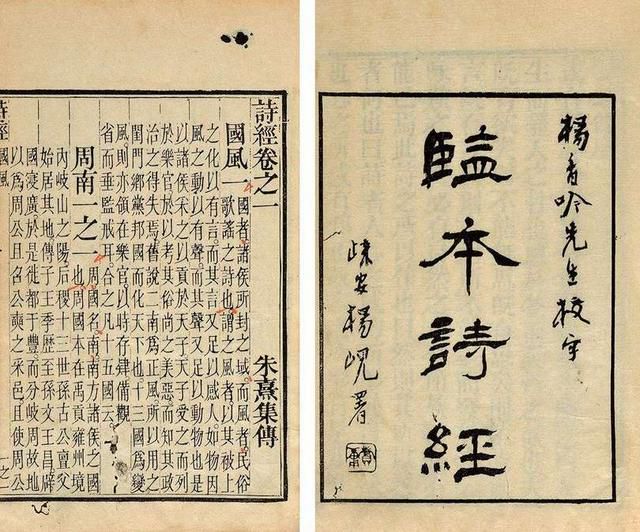 楊香吟先生校字
監本詩經
楊峴署
詩經卷之一
朱熹集傳
國風一
國者諸侯所封之域而風者民俗
歌謠之詩也謂之風者以其被上
之化以有言而其言又足以感人如物因
風之動以有聲而其聲又足以動物也是
以諸侯采之以貢於天子天子受之而列
於樂官於以考其俗尚之美惡而知其政
治之得失焉舊說二南為正風所以用之
閨門鄉黨邦國而化天下也十三國為變
風則亦領在樂官以時存肄備觀
省而垂監戒耳合之凡十五國云
周南一之一
周國名南南方諸侯之國
也周國本在禹貢雍州境
內岐山之陽后稷十三世孫古公亶父
始居其地傳子王季歷至孫文王昌辟
國寖廣於是徙都于豐而分岐周故地
以為周公旦召公奭之采邑且使周公
詩經
國風